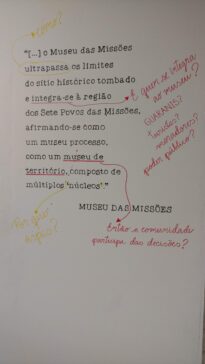 Como?
"[...] o Museu das Missões
ultrapassa os limites
do sítio histórico tombado
e integra-se à região
dos Sete Povos das Missões,
afirmando-se como
um museu processo,
como um museu de
território, composto de
múltiplos 'núcleos'."
MUSEU DAS MISSÕES
E quem se integra
ao museu?
GUARANIS?
moradores?
poder público?
Por que
aspas?
Então a comunidade
participa das decisões?